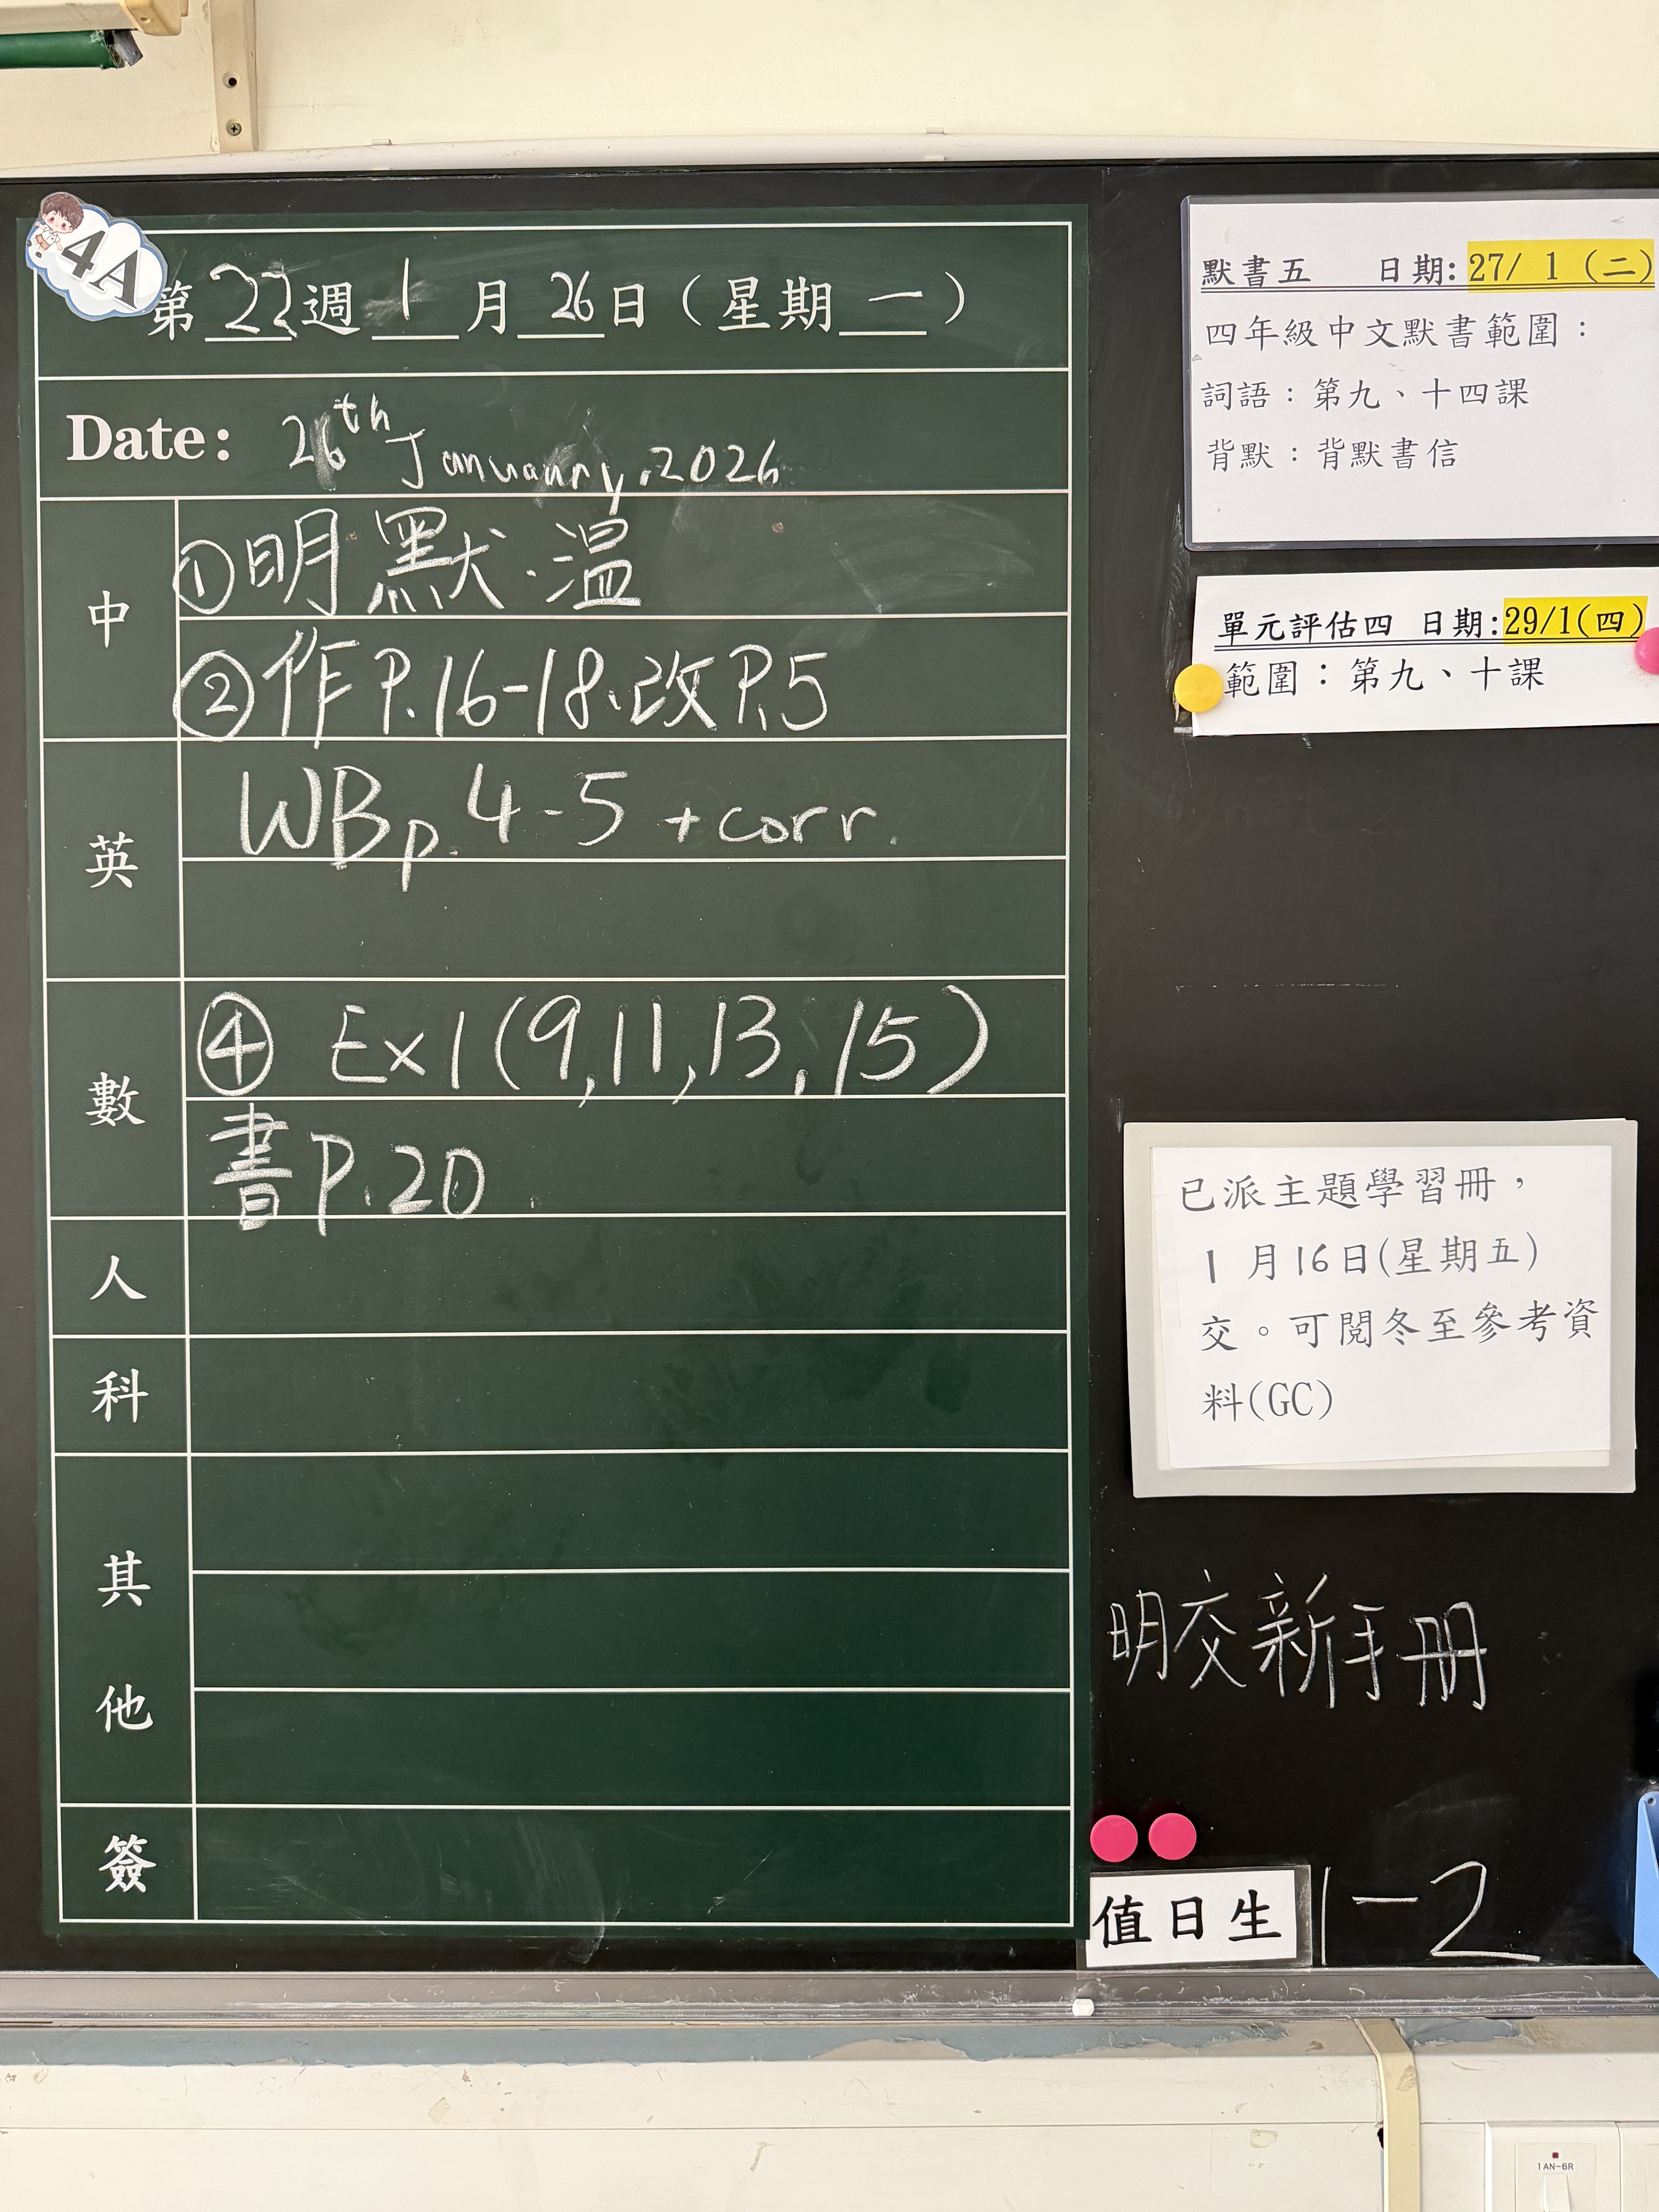 4A
第22週1月26日（星期一）
Date: 26th Januaury,2026
中
①明默.温
②作P.16-18.改P.5
英
WBp.4-5 +corr.
數
④ Ex1(9,11,13,15)
書P.20
人
科
其
他
簽
默書五 日期:27/1（二）
四年級中文默書範圍：
詞語：第九、十四課
背默：背默書信
單元評估四 日期:29/1(四)
範圍：第九、十課
已派主題學習冊，
1月16日(星期五)
交。可閱冬至參考資
料(GC)
明交新手冊
值日生 1-2
1AN-6R